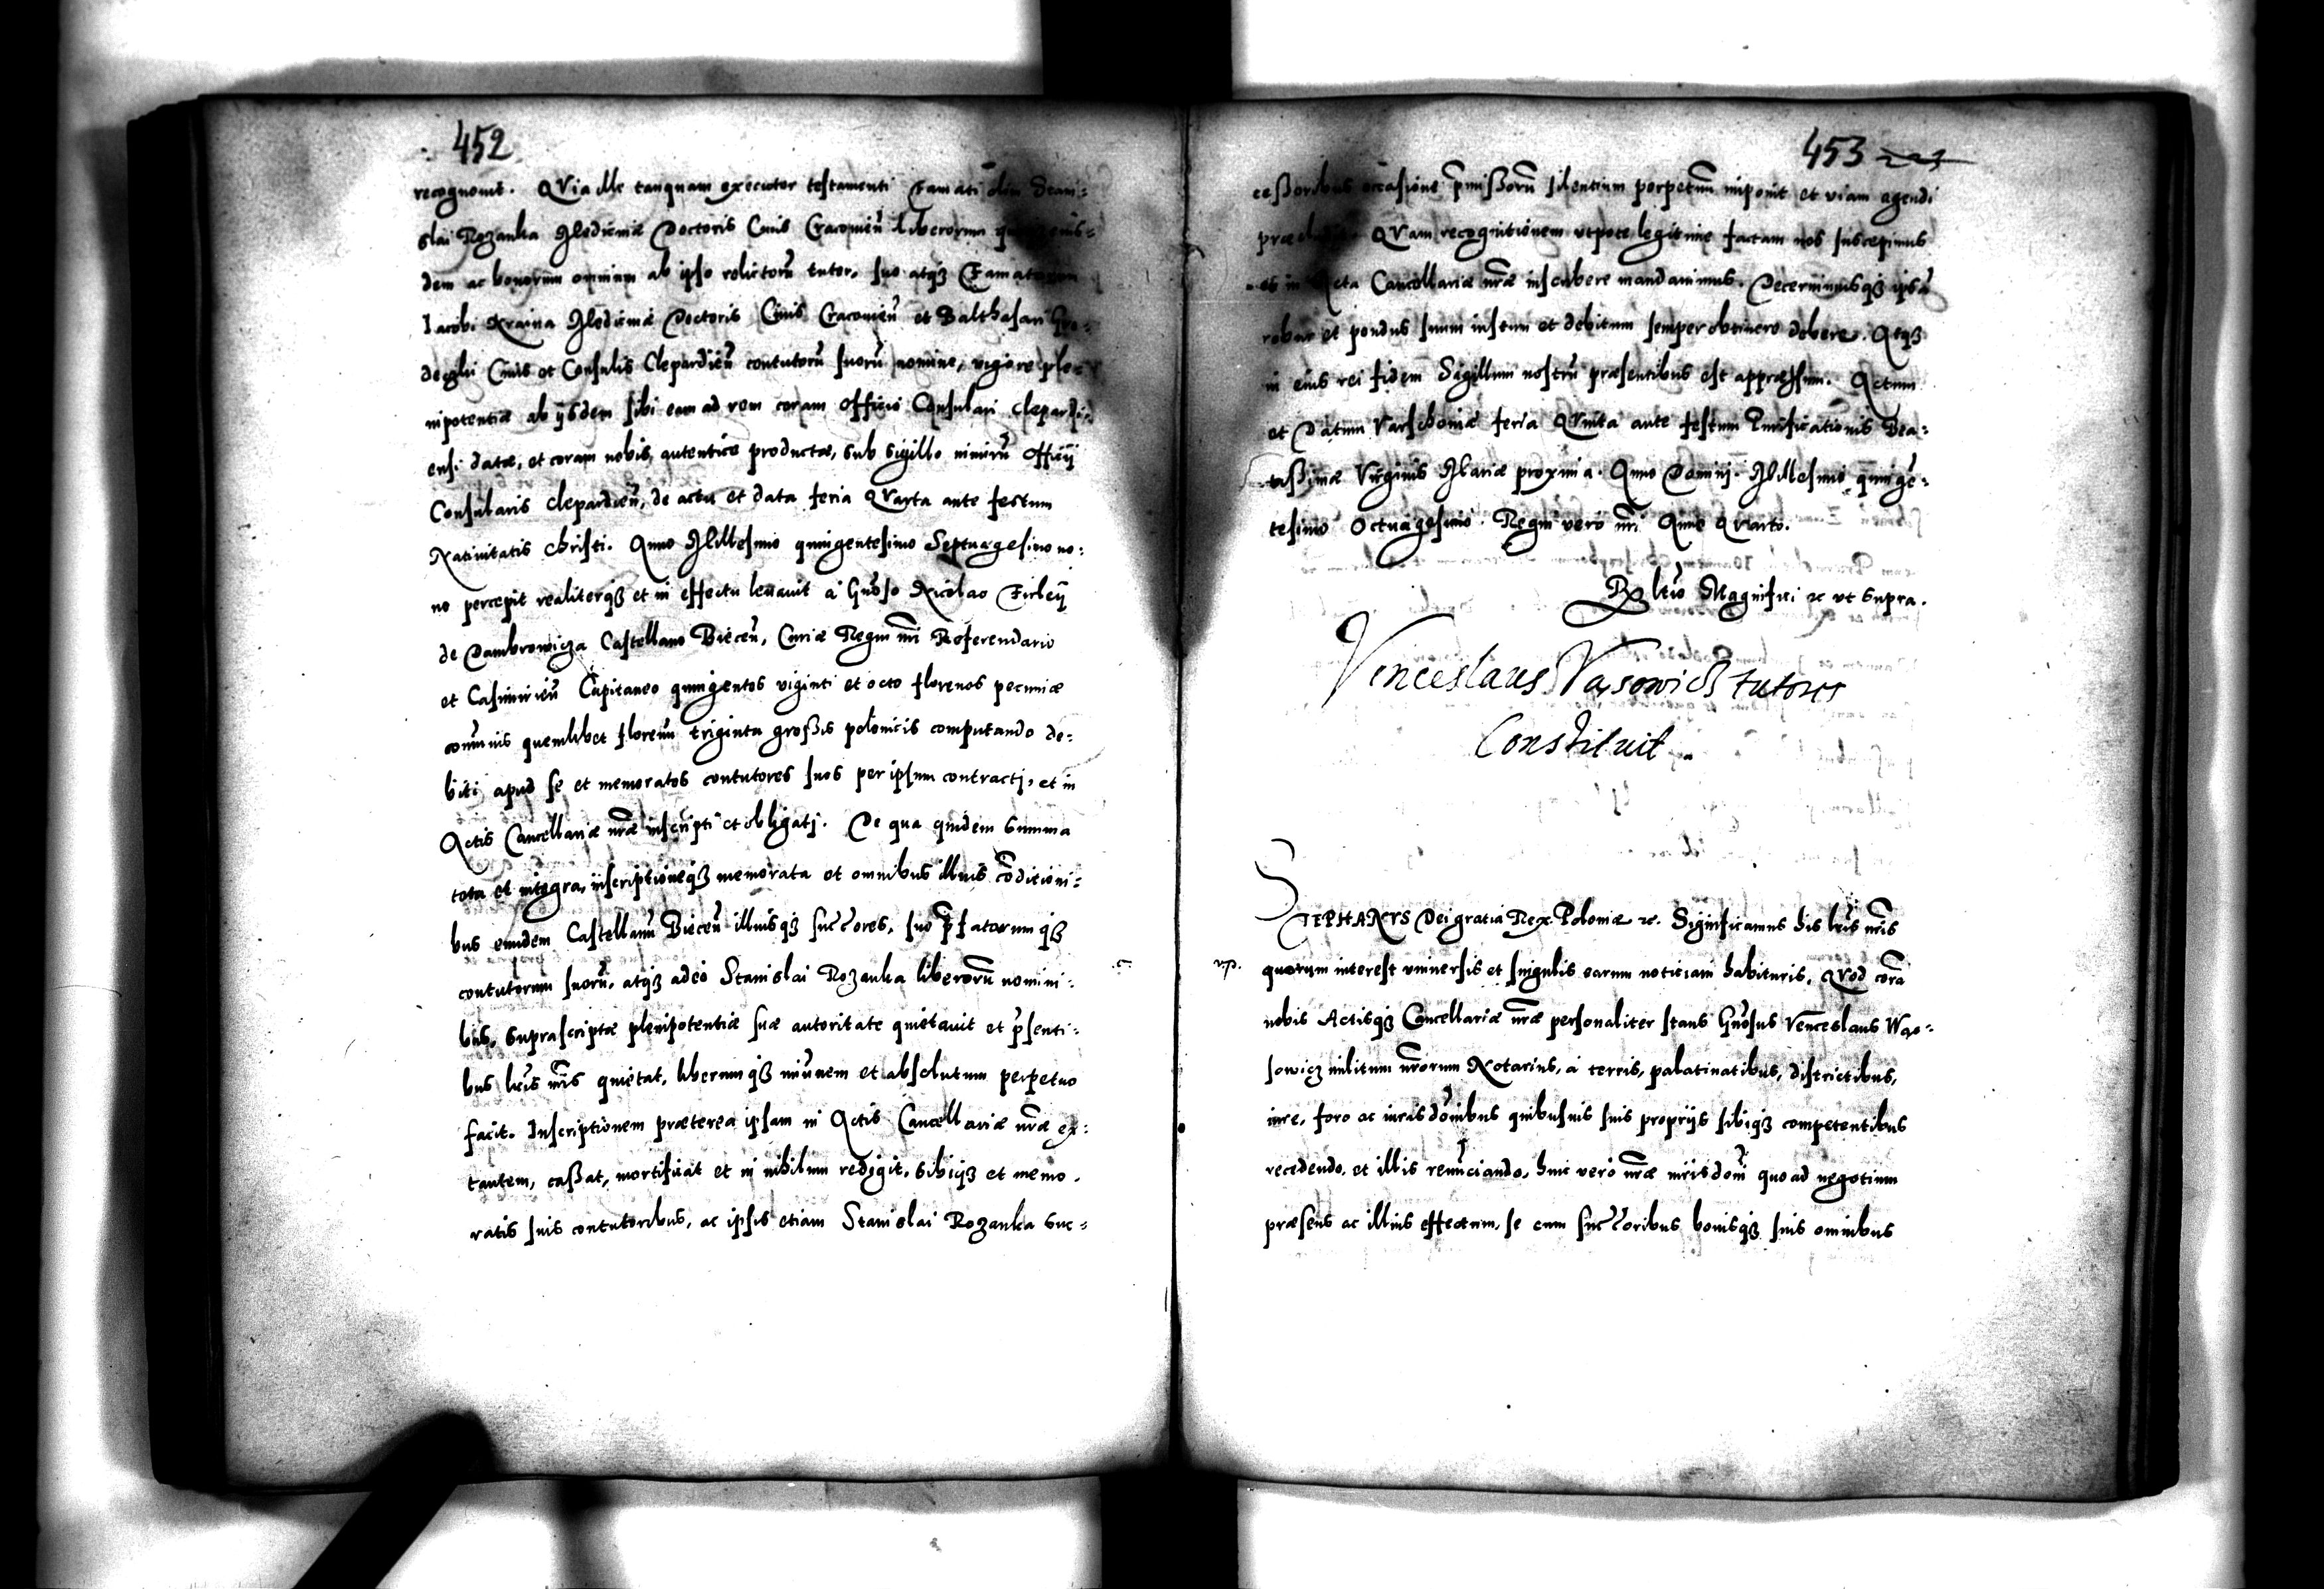 452
recognouit. QVia ille tanquam executor testamenti Famati olim Stani=
slai Rozanka Medicinæ Doctoris Ciuis Cracouien̄ liberorum
dem ac bonorum omnium ab ipso relictorū tutor, suo atq3
Iacobi Kraina Medicinæ Doctoris Ciuis Cracouien̄ et Balthasari
Ciuis et Consulis Clepardien̄ contutorū suorū nomine, vigore ple=
nipotentiæ ab ijsdem sibi eam ad rem coram officio Consulari clepardi=
ensi datæ, et coram nobis autenticè productæ, sub sigillo nimirū officij
Consularis clepardien̄, de actu et data feria QVarta ante festum
Natiuitatis christi. Anno Millesimo quingentesimo Septuagesimo no:
no percepit realiterq3 et in effectu leuauit à Gn̄oso Nicolao Firleÿ
de Dambrowicza Castellano Biecen̄, Curiæ Regni nr̄i Referendario
et Casimirien̄ Capitaneo quingentos viginti et octo florenos pecuniæ
com̄unis quemlibet florenū triginta grossis polonicis computando de=
biti apud se et memoratos contutores suos per ipsum contractj, et in
Actis Cancellariæ nr̄æ inscripti et obligatj. De qua quidem summa
tota et integra, inscriptioneq3 memorata et omnibus illius cōditioni=
bus eundem Castellanū Biecen̄ illiusq3 succ̄ores, suo p̄fatorumq3
contutorum suorū, atq3 adeò Stanislai Rozanka liberorū nomini=
bus, suprascriptæ plenipotentiæ suæ autoritate quietauit et p̄senti=
bus lr̄is nr̄is quietat, liberumq3 im̄unem et absolutum perpetuo
facit. Inscriptionem præterea ipsam in Actis Cancellariæ nr̄æ ex=
tantem, cassat, mortificat et in nihilum redigit, sibiq3 et memo=
ratis suis contutoribus, ac ipsis etiam Stanislai Rozanka suc=
453
cessoribus occasione p̄missorū silentium perpetuū imponit et viam agendi
QVam recognitionem vtpote legitime factam nos suscepimus
et in Acta Cancellariæ nr̄æ inscribere mandauimus. Decernimusq3 ipsā
robur et pondus suum iustum et debitum semper obtinere debere. Atq3
in eius rei fidem Sigillum nostrū præsentibus est appressum. Actum
et Datum Varschouiæ feria QVinta ante festum Purificationis Bea=
tissimæ Virginis Mariæ proxima. Anno Dominj. Millesimo quinge=
tesimo Octuagesimo. Regni vero nr̄i Anno QVarto.
Rltio Magnifici &c vt supra.
Venceslaus Vąsowich tutores
Constituit.
STEPHANVS Dei gratia Rex Poloniæ &c. Significamus his lr̄is nr̄is
quorum interest vniuersis et singulis earum notitiam habituris, QVod corā
nobis Actisq3 Cancellariæ nr̄æ personaliter stans Gn̄osus Venceslaus Wąs=
sowicz militum nr̄orum Notarius, à terris, palatinatibus, districtibus,
iure, foro ac iurisdōnibus quibusuis suis proprijs sibiq3 competentibus
recedendo, et illis renūciando, huic verò nr̄æ iurisdōni quo ad negotium
præsens ac illius effectum, se cum succ̄oribus bonisq3 suis omnibus